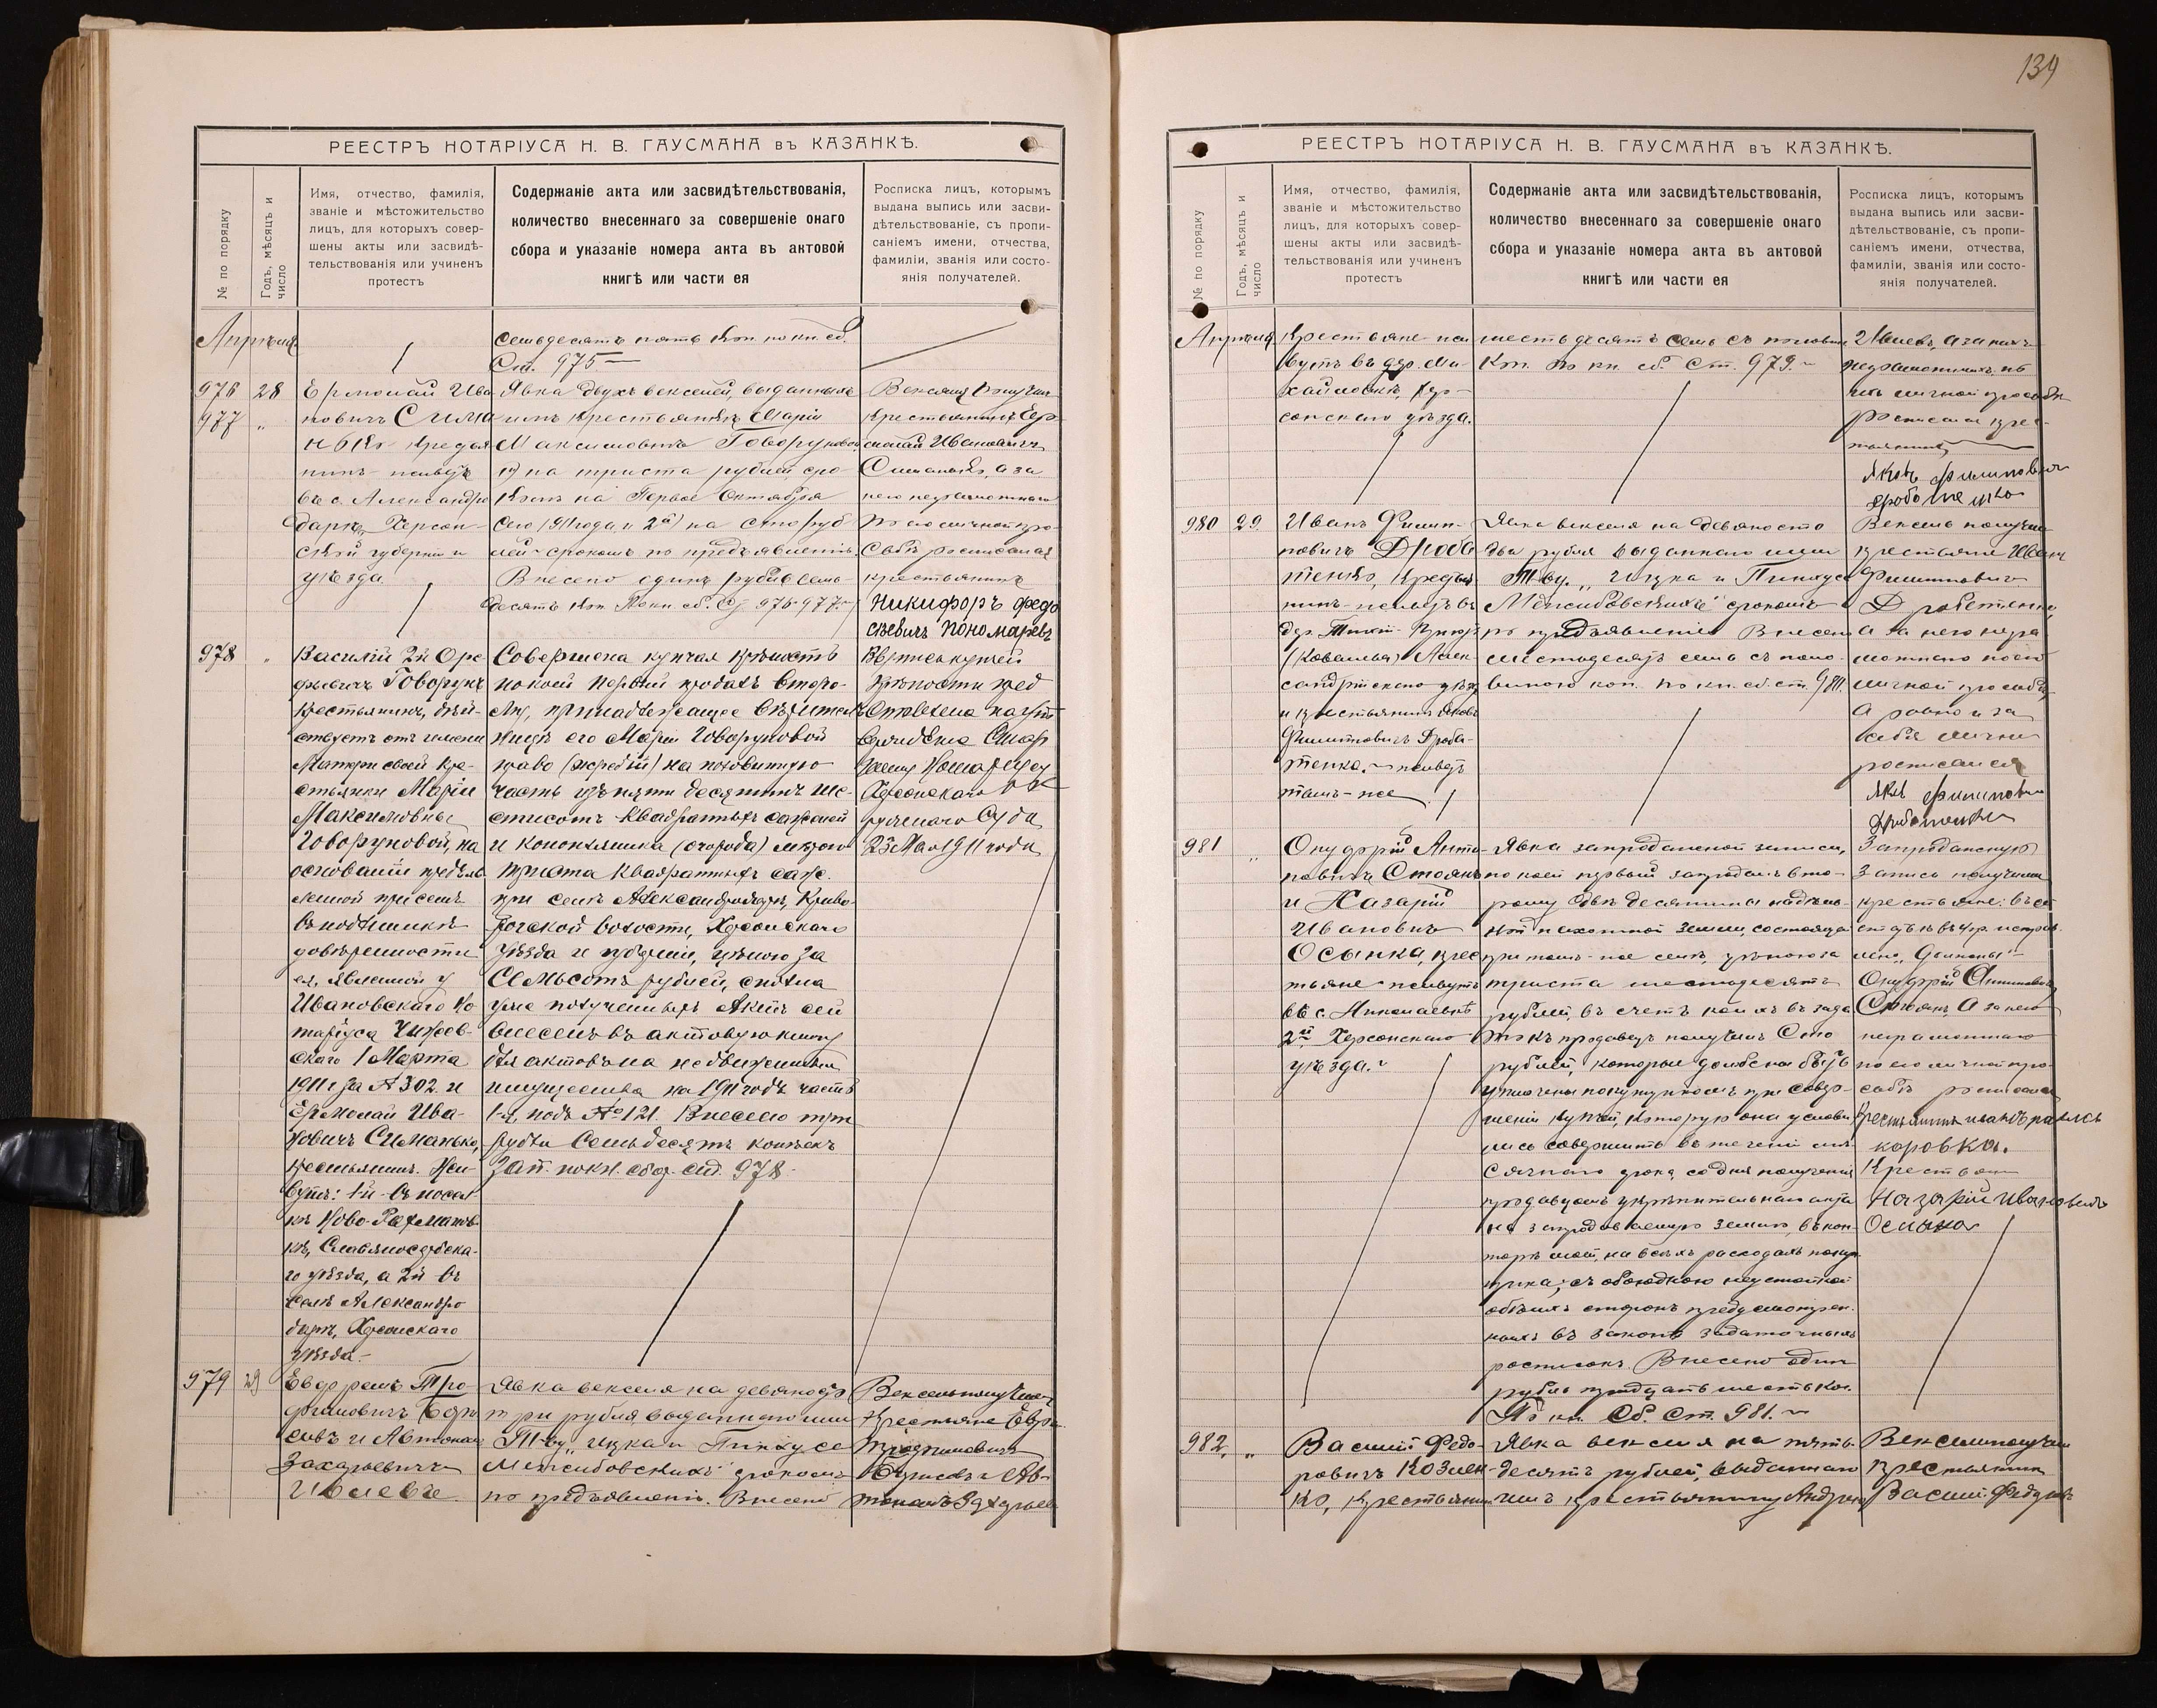 139
РЕЕСТРЪ НОТАРІУСА Н. В. ГАУСМАНА въ КАЗАНКѢ.
№ по порядку
Годъ, мѣсяцъ и
число
Имя, отчество, фамилія,
званіе и мѣстожительство
лицъ, для которыхъ совер-
шены акты или засвидѣ-
тельствованія или учиненъ
протестъ
Содержаніе акта или засвидѣтельствованія,
количество внесеннаго за совершеніе онаго
сбора и указаніе номера акта въ актовой
книгѣ или части ея
Росписка лицъ, которымъ
выдана выпись или засви-
дѣтельствованіе, съ пропи-
саніемъ имени, отчества,
фамиліи, званія или состо-
янія получателей.
Апрѣля
семьдесятъ пять коп. по кн. сб.
Ст. 975
976
977
28
„
Ермолай Ива
новичъ Симан
нинъ
въ с. Александро
даръ, Херсон-
ской губерніи и
уѣзда
Явка двухъ векселей, выданныхъ
имъ крестьянкѣ Маріи
Максимовнѣ Говоруновой
1) на триста рублей, сро-
комъ на Первое Октября
сего 1911 года и 2й) на сто руб
лей срокомъ по предъявленію.
Внесено одинъ рубль семь-
десятъ коп. По кн. сб. ст. 976-977.
Векселя получилъ
крестьянинъ Ер-
молай Ивановичъ
Симанько, а за
него неграмотнаго
по его личной про-
сьбѣ росписался
крестьянинъ
Никифоръ Федо
сѣевичъ Пономаревъ
978
„
Василій 2й Оре
фьевичъ Говорунъ
крестьянинъ, дѣй-
ствуетъ отъ имени
Матери своей кре-
стьянки Маріи
Максимовны
Говоруновой, на
основаніи предъяв
ленной при семъ
въ подлинникѣ
довѣренности
ея, явленной у
Ивановскаго Но
таріуса Чижев-
скаго 1 Марта
1911 г. за № 302 и
Ермолай Ива-
новичъ Симанько,
крестьянинъ. Жи-
вутъ: 1-й въ посел-
кѣ Ново-Рахманов-
кѣ, Славяносербска-
го уѣзда, а 2й въ
селѣ Александро
даръ, Херсонскаго
уѣзда.
Совершена купчая крѣпость
по коей первый продалъ второ-
му, принадлежащее довѣритель
ницѣ его Маріи Говоруновой
право (жребій) на половинную
часть изъ пяти десятинъ ше-
стисотъ квадратныхъ саженей
и конопляника (огорода) мѣрою
триста квадратныхъ саж.
при селѣ Александродарѣ, Криво-
рогской волости, Херсонскаго
уѣзда и губерніи, цѣною за
семьсотъ рублей, сполна
уже полученныхъ. Актъ сей
внесенъ въ актовую книгу
для актовъ на недвижимыя
имущества на 1911 годъ часть
1-я, подъ № 121. Внесено три
рубля семьдесятъ копѣекъ
Зап. по кн. сбор. ст. 978
Выпись купчей
крѣпости пред
ставлена на ут
вержденіе Стар
шему Нотаріусу
Херсонскаго Ок
ружнаго Суда
23 Мая 1911 года
979
29
Евфремъ Тро
фимовичъ
и Автономъ
Захарьевичъ
Ивлевъ
Явка векселя на девяносто
три рубля выданнаго ими
Т-ву „Ицка и Пинхуса
Межибовскихъ" срокомъ
по предъявленію. Внесено
Вексель получили
крестьяне Евфремъ
Трофимовичъ
и Ав-
тономъ Захарьев
РЕЕСТРЪ НОТАРІУСА Н. В. ГАУСМАНА въ КАЗАНКѢ.
№ по порядку
Годъ, мѣсяцъ и
число
Имя, отчество, фамилія,
званіе и мѣстожительство
лицъ, для которыхъ совер-
шены акты или засвидѣ-
тельствованія или учиненъ
протестъ
Содержаніе акта или засвидѣтельствованія,
количество внесеннаго за совершеніе онаго
сбора и указаніе номера акта въ актовой
книгѣ или части ея
Росписка лицъ, которымъ
выдана выпись или засви-
дѣтельствованіе, съ пропи-
саніемъ имени, отчества,
фамиліи, званія или состо-
янія получателей.
Апрѣля
крестьяне жи
вутъ въ дер. Ми-
хайловкѣ, Хер-
сонскаго уѣзда.
шестьдесятъ семь съ полов.
коп. по кн. сб. ст. 979.
Ивлевъ, а за нихъ
неграмотныхъ по
ихъ личной просьбѣ
росписался крес-
тьянинъ
Яковъ Филиповичъ
980
29
Иванъ Филип-
повичъ Дроба
тенко, крестья
нинъ живетъ въ
дер.
Алек-
сандрійскаго уѣзда
и крестьянинъ Яковъ
Филипповичъ Дроба-
тенко. живетъ
тамъ-же
Явка векселя на девяносто
два рубля выданнаго ими
Т-ву „Ицка и Пинхуса
Межибовскихъ" срокомъ
по предъявленію Внесено
шестьдесятъ семь съ поло-
виною коп. по кн. сб. ст. 980.
Вексель получили
крестьяне Иванъ
Филипповичъ
Дробатенко,
а за него негра
мотнаго по его
личной просьбѣ,
а равно и за
себя лично
росписался
Яковъ Филиповичъ
981
„
Онуфрій Анто-
новичъ Стоянъ
и Назарій
Ивановичъ
Осыпка, крес
тьяне живутъ
въ с. Николаевкѣ
2й Херсонскаго
уѣзда.
Явка запродажной записи,
по коей первый запродалъ вто-
рому двѣ десятины надѣль-
ной пахотной земли, состоящей
при томъ-же селѣ, цѣною за
триста шестьдесятъ
рублей, въ счетъ коихъ въ зада
токъ продавецъ получилъ Сто
рублей, которые должны быть
уплачены покупщикомъ при совер-
шеніи купчей, которую они услови
лись совершить въ теченіи мѣ-
сячнаго срока со дня полученія
продавцомъ укрѣпительнаго акта
на запродаваемую землю, въ кон-
торѣ моей, на всѣхъ расходахъ покуп
щика; съ обоюдною неустойкой
обѣихъ сторонъ предусмотрен-
ныхъ въ законѣ задаточныхъ
росписокъ. Внесено одинъ
рубль тридцать шесть коп.
По кн. Сб. Ст. 981.
Запродажную
запись получили
крестьяне:
Онуфрій Антоновичъ
Стоянъ а за него
неграмотнаго
по его личной про-
сьбѣ росписался
коровка.
Крестьян
Назарій Ивановичъ
Осыпка
982.
„
Василій Федо-
ровичъ Козлен-
ко, крестьянинъ
Явка векселя на пять-
десятъ рублей, выданнаго
имъ крестьянину Андрею
Вексель получилъ
крестьянинъ
Василій Федоровъ